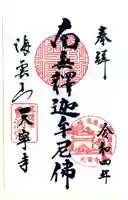 奉拝
令和四年
南無釋迦牟尼佛
海雲山天寧寺